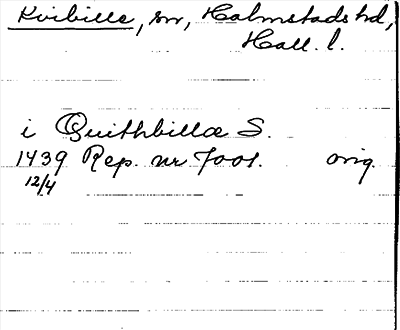 Kvibille, sn, Halmstads hd,
Hall. l.
i Quithbillæ S.
1439 Rep. nr 7001. orig.
12/4